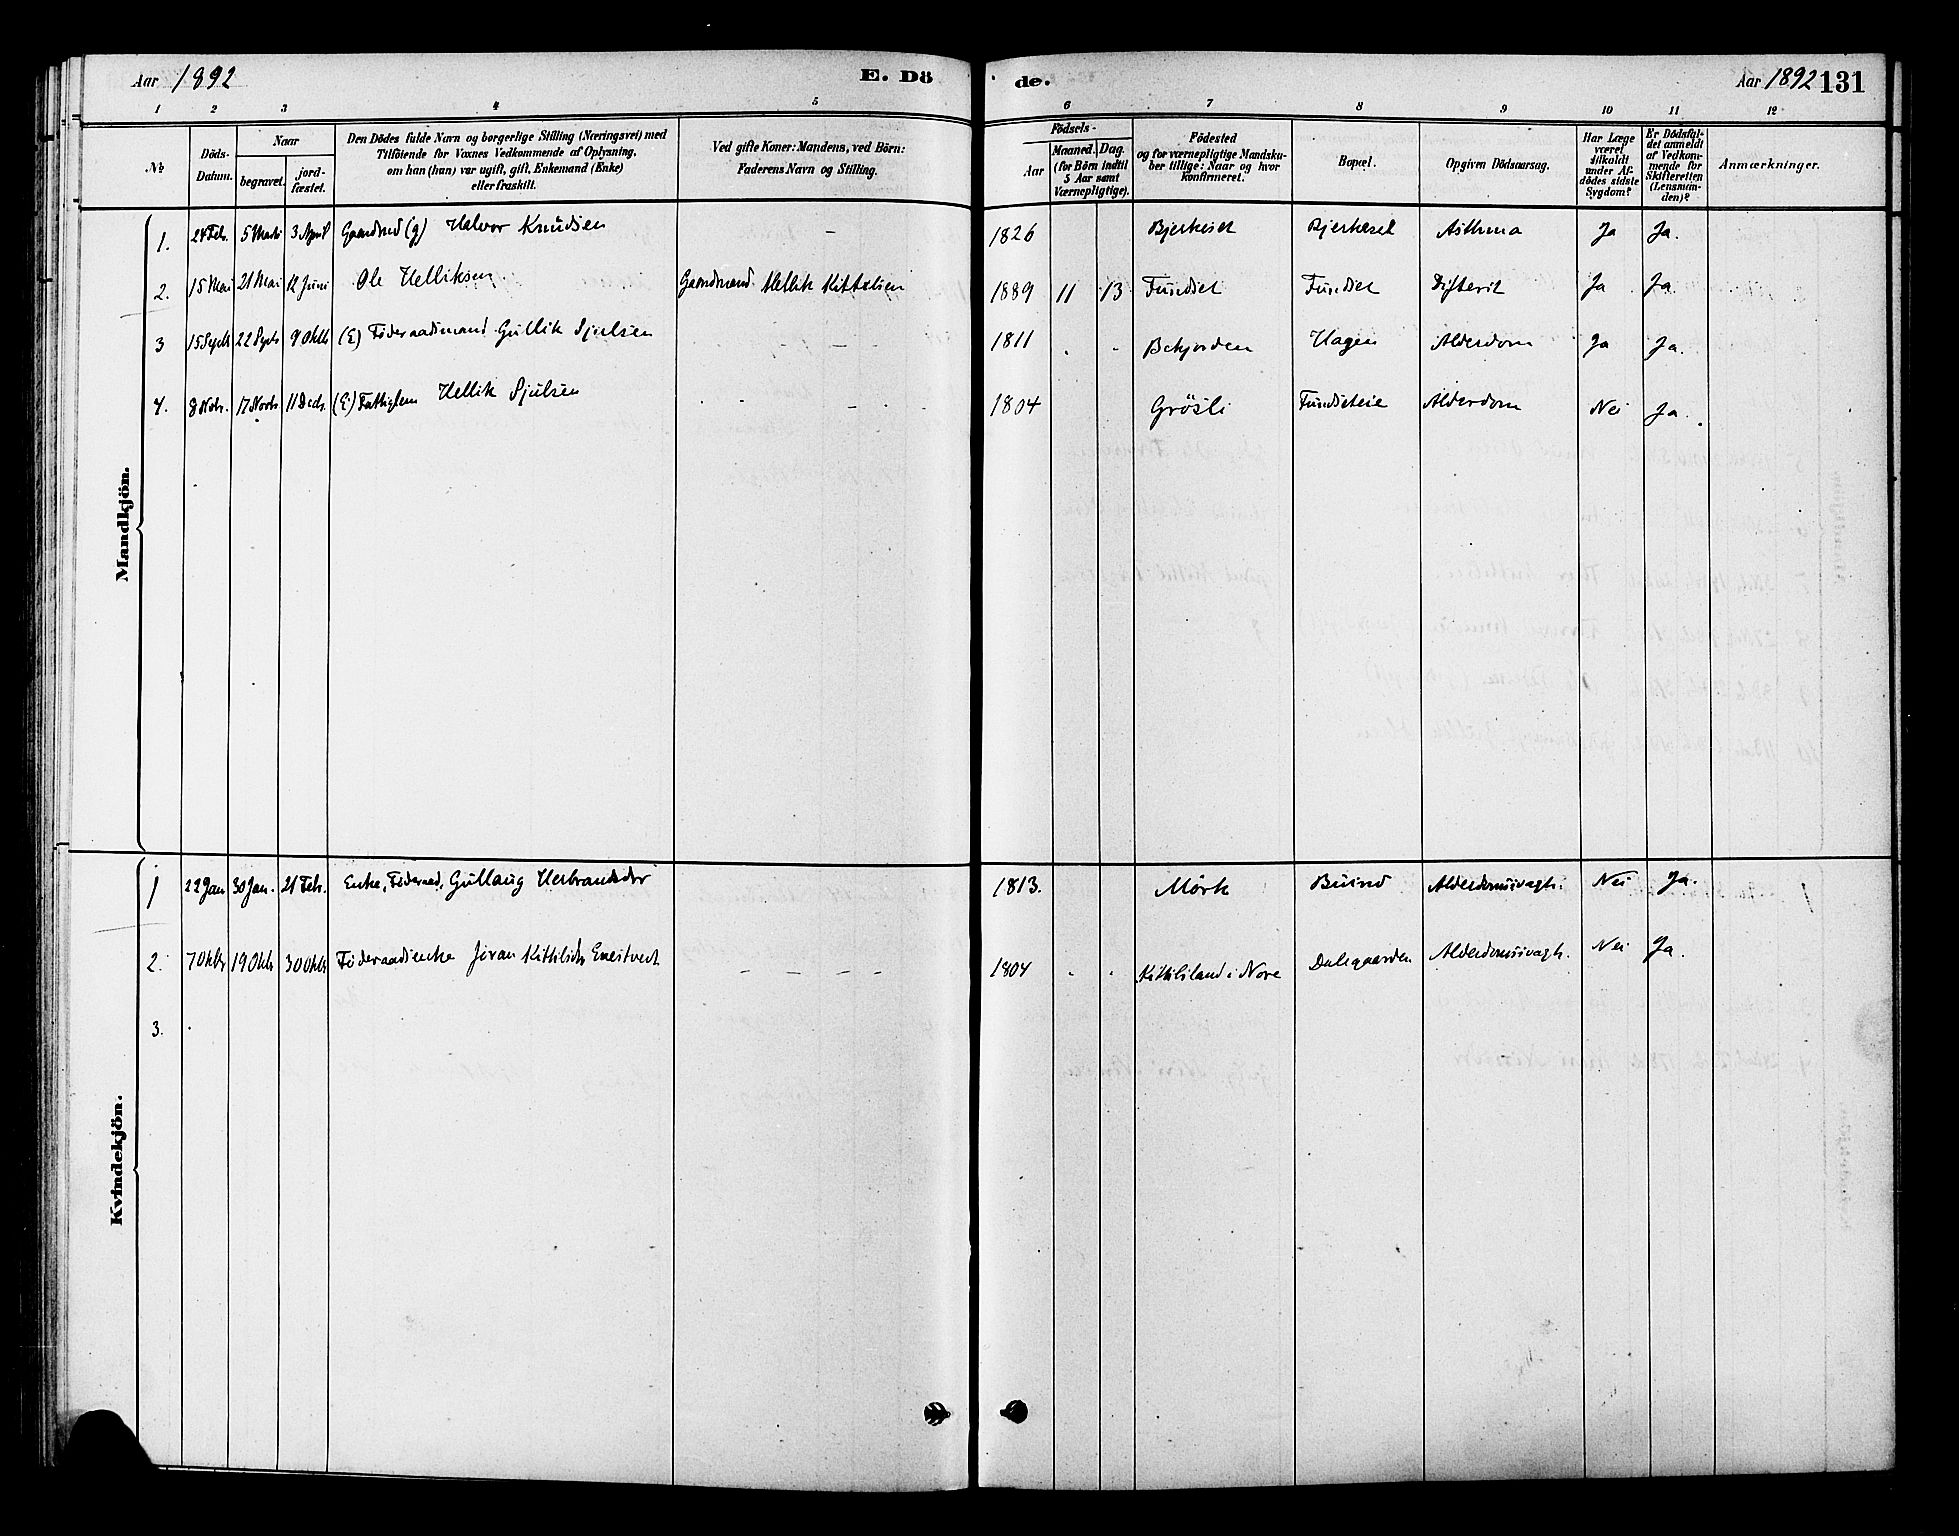 Aar 1892 E. Dö de. Aar 1892 131
1 2 3 4 5 6 7 8 9 10 11 12
№ Döds-Datum. Naar begravet. jordfæstet. Den Dödes fulde Navn og borgerlige Stilling (Næringsvei) med Tilföiende for Voxnes Vedkommende af Oplysning, om han (hun) var ugift, gift, Enkemand (Enke) eller fraskilt. Ved gifte Koner: Mandens, ved Börn: Faderens Navn og Stilling. Födsels- Aar Maaned. Dag. (for Börn indtil 5 Aar samt Værnepligtige). Födested og for værnepligtige Mandskuber tillige: Naar og hvor konfirmeret. Bopæl. Opgiven Dödsaarsag. Har Læge været tilkaldt under Afdödes sidste Sygdom? Er Dödsfaldet anmeldt af Vedkommende for Skifteretten (Lensmanden)? Anmærkninger.
Mandkjön.
1. 24 Feb. 5 Marts 3 April Gaardmd (g) Halvor Knudsen – 1826 Bjerkeset Bjerkeset Asthma Ja Ja.
2. 15 Mai 21 Mai 12 Juni Ole Helliksen Gaardmand Hellik Kittelsen 1889 11 13 Fundset Fundset Difterit Ja Ja.
3 15 Septb 22 Septb 9 Oktb (E) Föderaadsmand Gullik Sjulsen 1811 Bekjorden Hagen Alderdom Ja Ja.
4. 8 Novb. 17 Novb 11 Decb. (E) Fattiglem Hellik Sjulsen 1804 Grösli Fundseteie Alderdom Nei Ja.
Kvindekjön.
1 22 Jan 30 Jan. 21 Feb. Enke, Föderaad, Gullaug Herbrandsdtr 1813. Mörk Buind Alderdomssvagh. Nei Ja.
2. 7 Oktb 19 Oktb 30 Oktb Föderaadsenke Jöran Kittilsdtr – – – – 1804 Kittilsland i Nore Dalegaarden Alderdomssvagh. Nei Ja.
3.